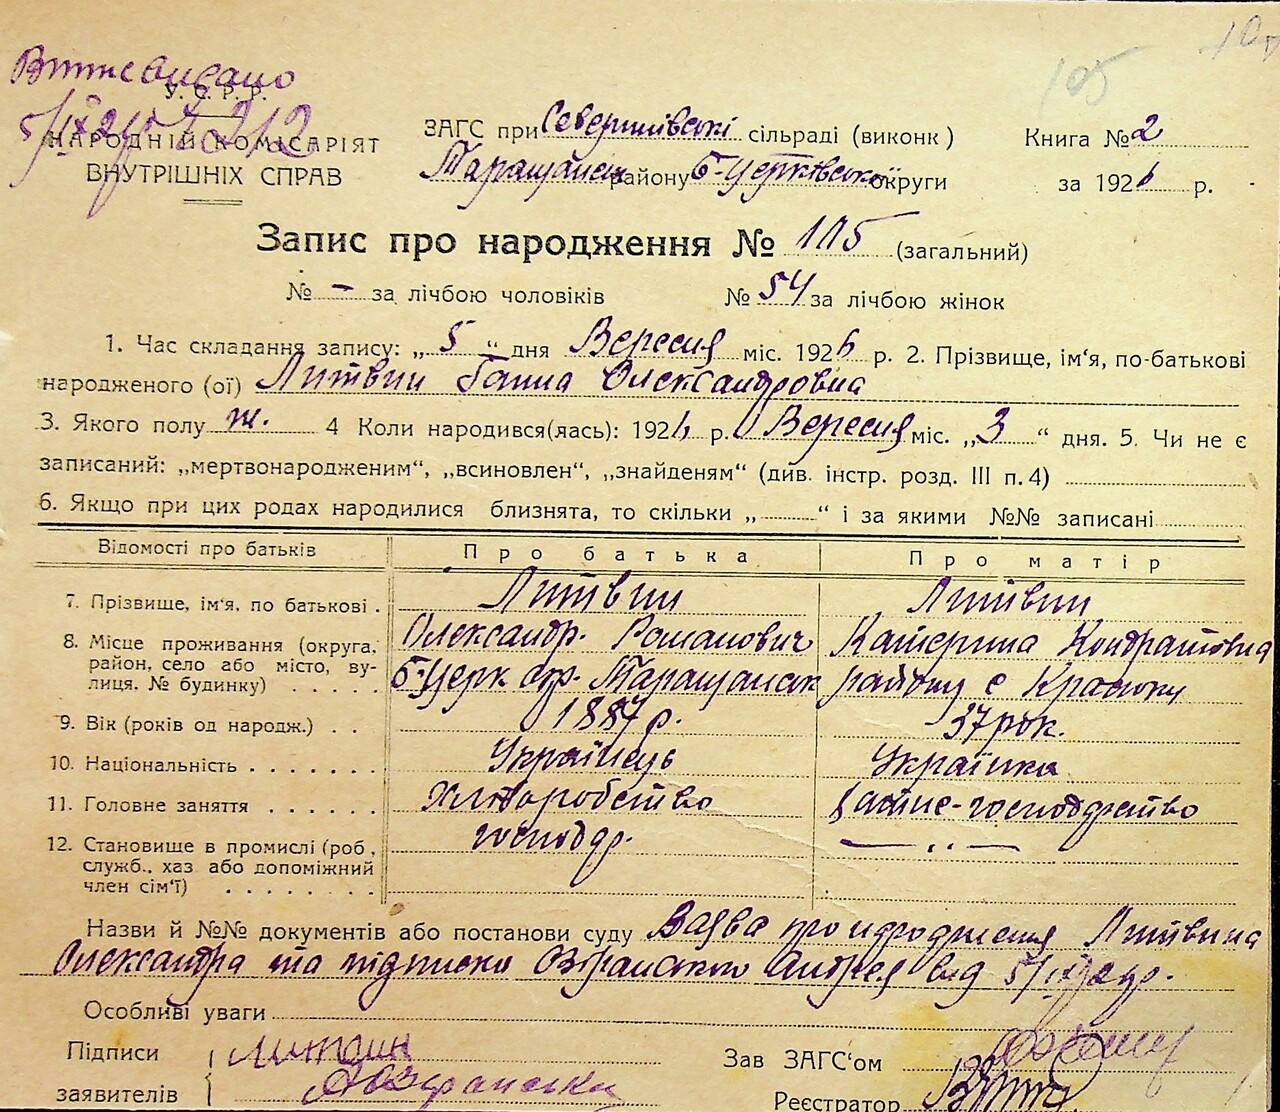 105
У. С. Р. Р.
НАРОДНІЙ КОМІСАРІЯТ
ВНУТРІШНІХ СПРАВ
ЗАГС при Северинівські сільраді (виконк)
Таращанськ району Б-Церківської округи
Книга № 2
за 1926 р.
Запис про народження № 105 (загальний)
№ - за лічбою чоловіків № 54 за лічбою жінок
1. Час складання запису: „ 5 “ дня Вересня міс. 1926 р. 2. Прізвище, ім'я, по-батькові
народженого (ої) Литвин Ганна Олександровна
3. Якого полу ж. 4 Коли народився(лась): 1926 р. Вересня міс. „ 3 “ дня. 5. Чи не є
записаний: „мертвонародженим“, „всиновлен“, „знайденям“ (див. інстр. розд. III п. 4)
6. Якщо при цих родах народилися близнята, то скільки „ “ і за якими №№ записані
Відомості про батьків Про батька Про матір
7. Прізвище, ім'я, по батькові . Литвин Литвин
Олександр. Романович Катерина Кондратовна
8. Місце проживання (округа, район, село або місто, вулиця. № будинку) . . . . . Б-Церк окр. Таращанськ району с
9. Вік (років од народж.) . . 1887 р. 37 рок.
10. Національність . . . . . . . Українець Українка
11. Головне заняття . . . . . . Хліборобство хатнє-господарство
12. Становище в промислі (роб, служб., хаз або допоміжний член сім'ї) . . . . . . . . господар. — „ —
Назви й №№ документів або постанови суду Заява про народження Литвина
Олександра та підписка Андрея від 5/IX 26 р.
Особливі уваги
Підписи
заявителів
Литвин
Зав ЗАГС'ом
Реєстратор